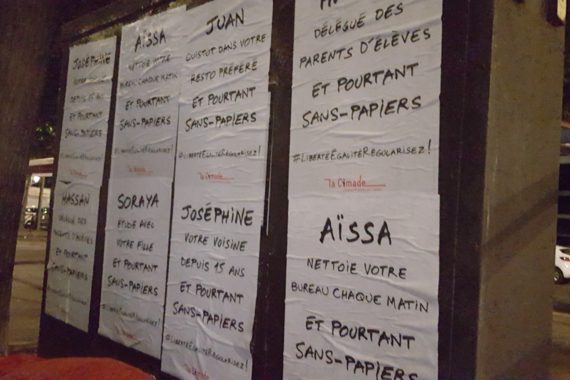 JOSÉPHINE
DEPUIS 15 ANS
ET POURTANT
SANS-PAPIERS
#LIBERTÉEGALITÉREGULARISEZ!
la Cimade
AÏSSA
NETTOIE VOTRE
BUREAU CHAQUE MATIN
ET POURTANT
SANS-PAPIERS
#LIBERTÉEGALITÉREGULARISEZ!
la Cimade
JUAN
CUISTOT DANS VOTRE
RESTO PRÉFÉRÉ
ET POURTANT
SANS-PAPIERS
#LIBERTÉEGALITÉREGULARISEZ!
la Cimade
DÉLÉGUÉ DES
PARENTS D'ELÈVES
ET POURTANT
SANS-PAPIERS
#LIBERTÉEGALITÉREGULARISEZ!
la Cimade
HASSAN
DÉLÉGUÉ DES
PARENTS D'ELÈVES
ET POURTANT
SANS-PAPIERS
SORAYA
ÉTUDIE AVEC
VOTRE FILLE
ET POURTANT
SANS-PAPIERS
JOSÉPHINE
VOTRE VOISINE
DEPUIS 15 ANS
ET POURTANT
SANS-PAPIERS
#LIBERTÉEGALITÉREGULARISEZ!
la Cimade
AÏSSA
NETTOIE VOTRE
BUREAU CHAQUE MATIN
ET POURTANT
SANS-PAPIERS